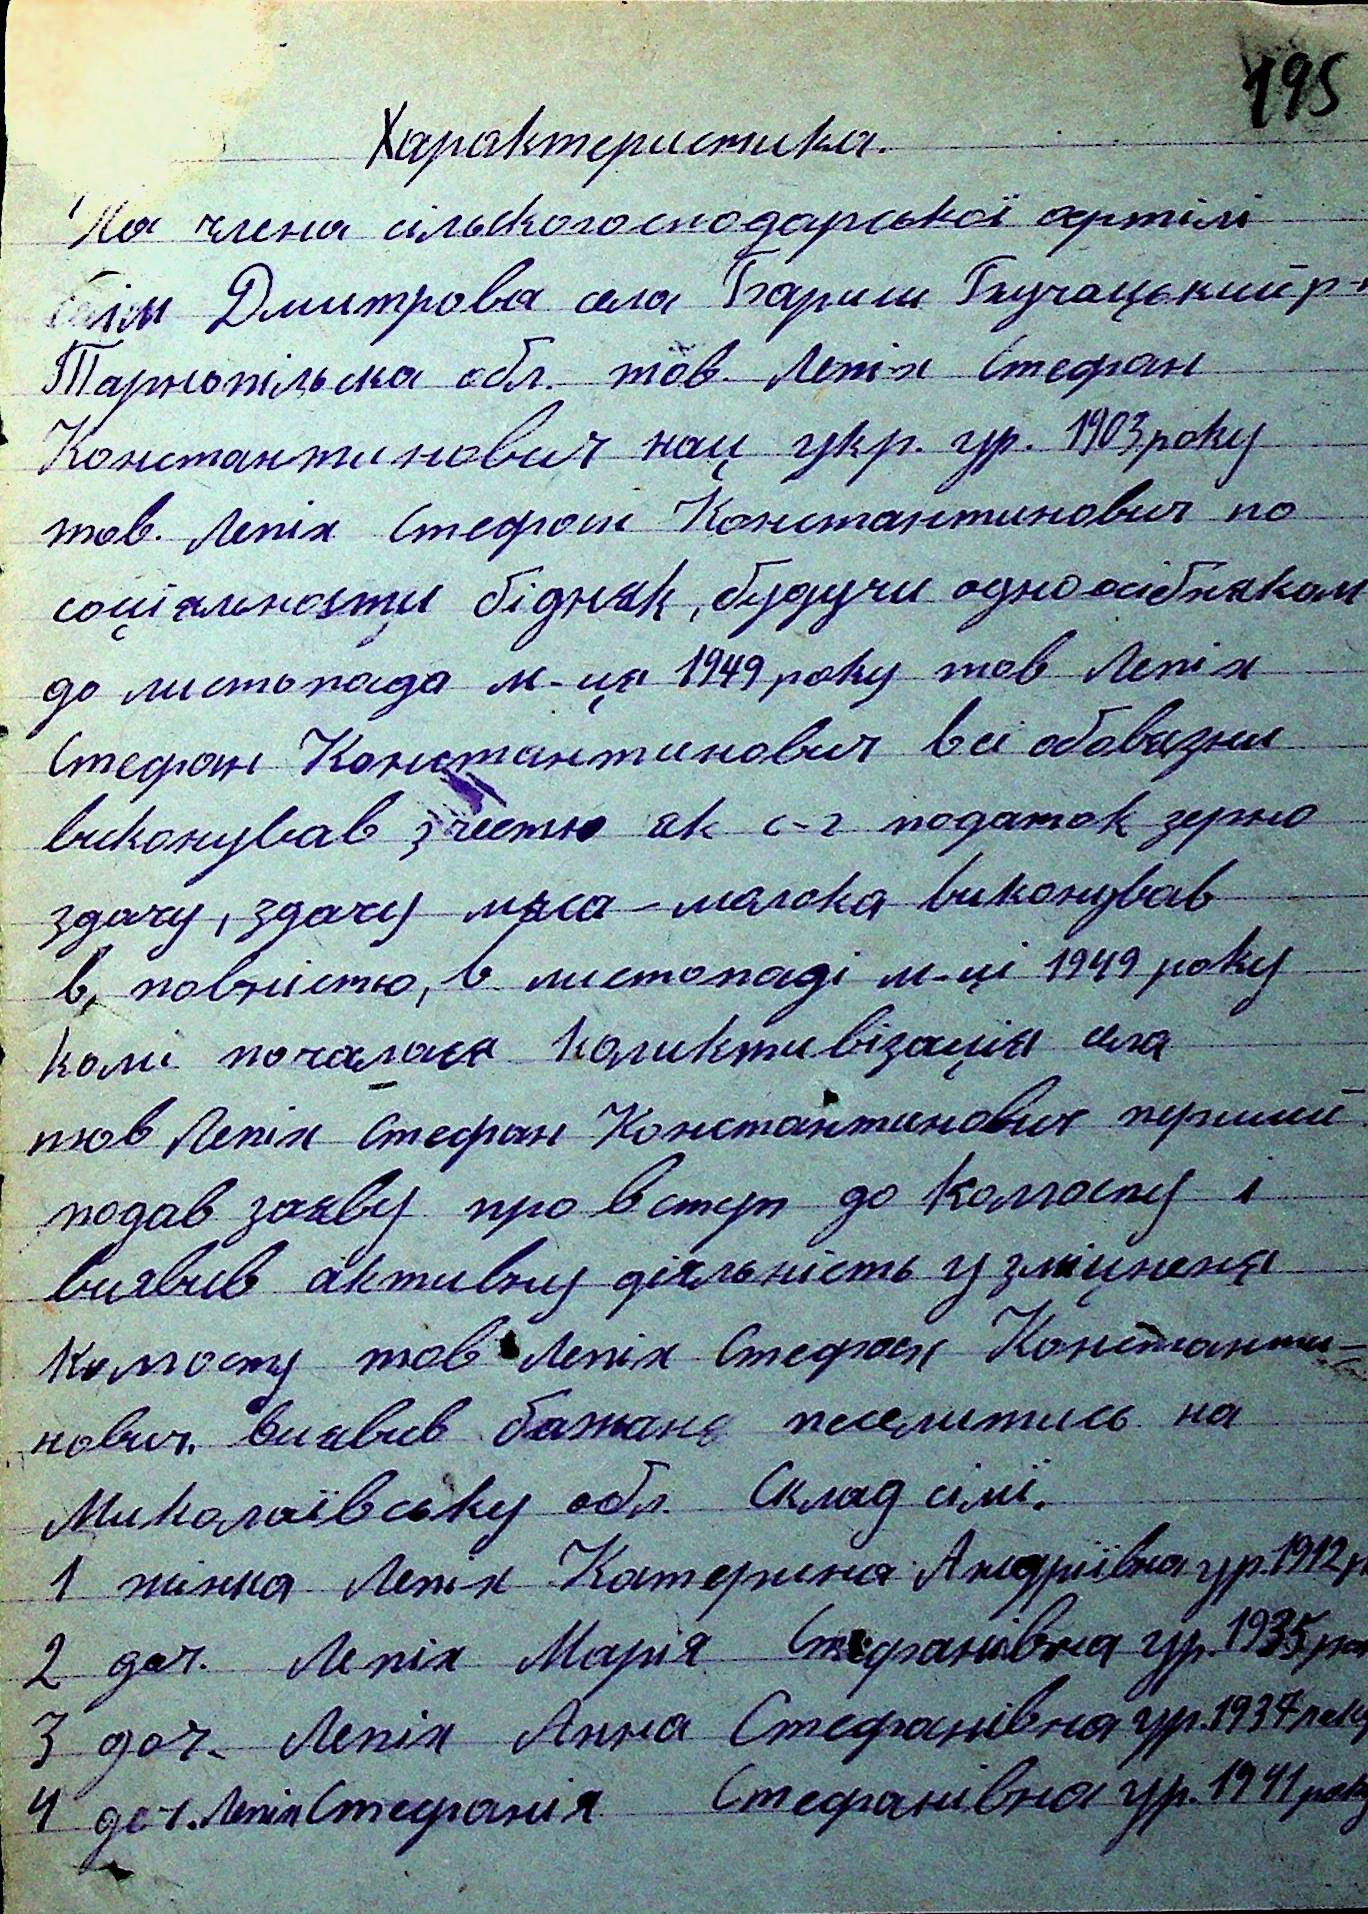 195
Характеристика.
На члена сільскогосподарської артілі
Димитрова села Бариш Бучацький р-н
Тарнопільска обл. тов. Лепіх Стефан
Константинович нац укр. ур. 1903 року
тов. Лепіх Стефан Константинович по
соціальности бідняк, будучи одноосібняком
до листопада м-ця 1949 року тов Лепіх
Стефан Константинович всі обовязки
виконував з честю як с-г податок зерно
здачу, здачу мяса-молока виконував
в, повністю, в листопаді м-ці 1949 року
коли почалася коликтивізація села
тов Лепіх Стефан Константинович перший
подав заяву про вступ до Колгоспу і
виявив активну діяльність у зміцненя
Колгоспу тов Лепіх Стефан Константи-
нович. виявив бажанє песелитись на
Миколаївську обл. Склад сімї.
1 жінка Лепіх Катерина Андріївна ур. 1912 р
2 доч. Лепіх Марія Стефанівна ур. 1935 рок
3 доч. Лепіх Анна Стефанівна ур. 1937 року
4 доч. Лепіх Стефанія Стефанівна ур. 1941 року